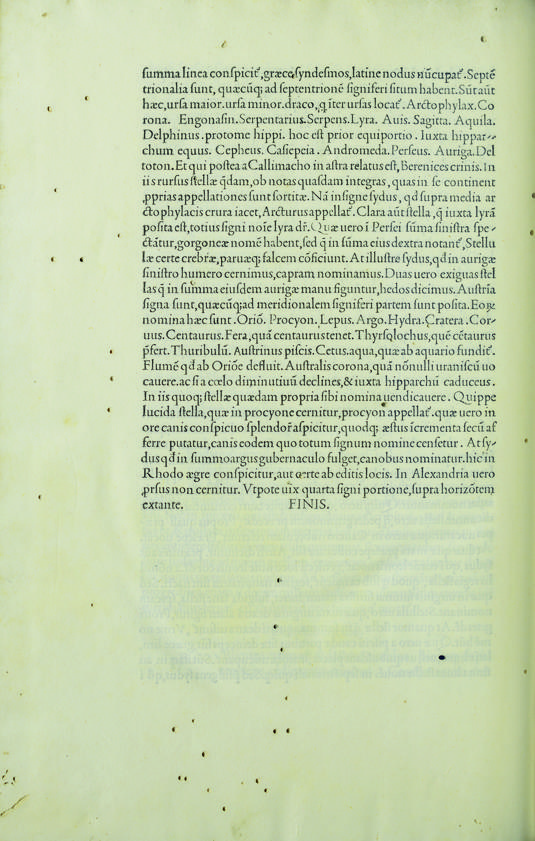 summa linea conspicit᷑, græceq; syndesmos, latine nodus nūcupat᷑. Septē
trionalia sunt, quæcūq; ad septentrionē signiferi situm habent. Sūt aūt
hæc, ursa maior. ursa minor. draco, q̄ iter ursas locat᷑. Arctophylax. Co
rona. Engonasin. Serpentarius. Serpens. Lyra. Auis. Sagitta. Aquila.
Delphinus. protome hippi. hoc est prior equi portio. Iuxta hippar⸗
chum equus. Cepheus. Casiepeia. Andromeda. Perseus. Auriga. Del
toton. Et qui postea a Callimacho in astra relatus est, Berenices crinis. In
iis rursus stellæ q̄dam, ob notas quasdam integras, quas in se continent
ꝓprias appellationes sunt sortitæ. Nā insigne sydus, qd supra media ar
ctophylacis crura iacet, Arcturus appellat᷑. Clara aūt stella, q̄ iuxta lyrā
posita est, totius signi noīe lyra dr̄. Quæ uero ī Persei sūma sinistra spe⸗
ctātur, gorgoneæ nomē habent, sed q̄ in sūma eius dextra notant᷑, Stellu
læ certe crebræ, paruæq; falcem cōficiunt. At illustre sydus, qd in aurigæ
sinistro humero cernimus, capram nominamus. Duas uero exiguas stel
las q̄ in summa eiusdem aurigæ manu figuntur, hedos dicimus. Austria
signa sunt, quæcūq; ad meridionalem signiferi partem sunt posita. Eoꝝ
nomina hæc sunt. Oriō. Procyon. Lepus. Argo. Hydra. Cratera. Cor⸗
uus. Centaurus. Fera, quā centaurus tenet. Thyrsꝗlochus, quē cētaurus
p̄fert. Thuribulū. Austrinus piscis. Cetus. aqua, quæ ab aquario fundit᷑.
Flumē qd ab Oriōe defluit. Australis corona, quā nōnulli uraniscū uo
cauere. ac si a cœlo diminutiuū declines, & iuxta hipparchū caduceus.
In iis quoq; stellæ quædam propria sibi nomina uendicauere. Quippe
lucida stella, quæ in procyone cernitur, procyon appellat᷑. quæ uero in
ore canis conspicuo splendor̄ aspicitur, quodq; æstus īcrementa secū af
ferre putatur, canis eodem quo totum signum nomine censetur. At sy⸗
dus qd in summo argus gubernaculo fulget, canobus nominatur. hic in
Rhodo ægre conspicitur, aut certe ab editis locis. In Alexandria uero
ꝓrsus non cernitur. Vtpote uix quarta signi portione, supra horizōtem
extante. FINIS.